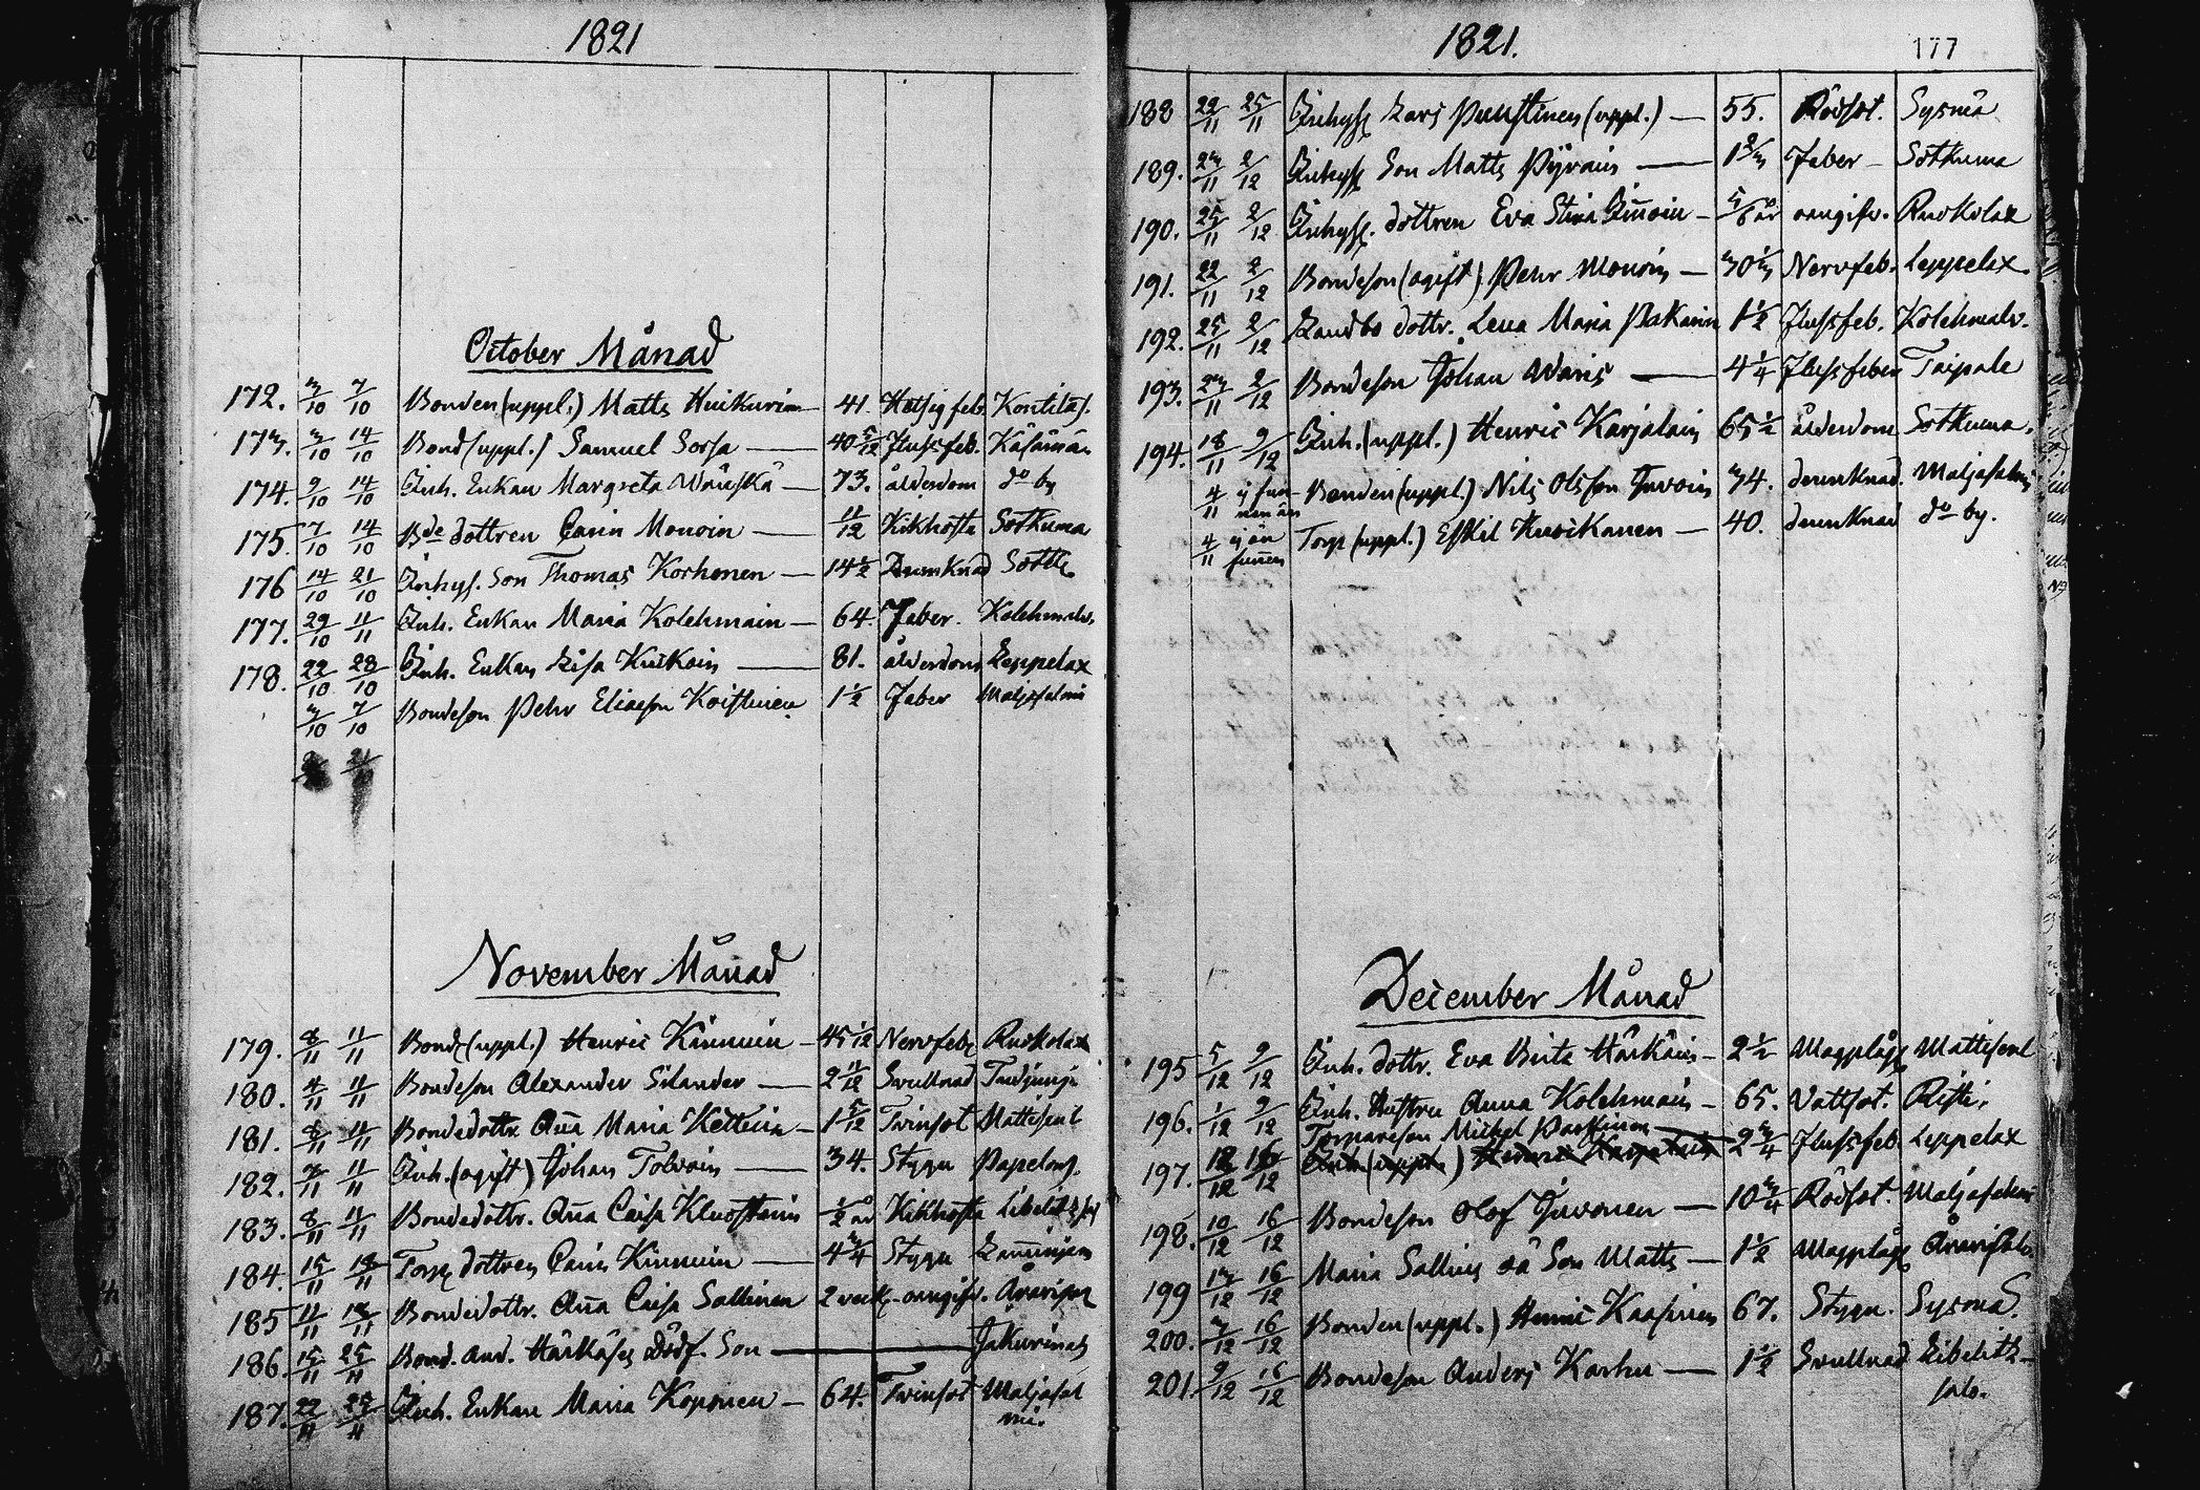 1821
October Månad
172. 3/10 7/10 Bonden (uppl.) Matts Huikurin — 41. Hetsig feb. Kontilax.
173. 3/10 14/10 Bond (uppl.) Samuel Sorsa — 40 5/12 Flussfeb. Käsämän
174. 9/10 14/10 Inh. Enkan Margreta Wänskä — 73. ålderdom do by
175. 7/10 14/10 Bde dottren Carin Monoin — 11/12 Kikhosta Sotkuma
176 14/10 21/10 Inhys. Son Thomas Korhonen — 14 1/2 Drunknad Sotk.
177. 29/10 11/11 Inh. Enkan Maria Kolehmain — 64. Feber. Kolehmalv.
178. 22/10 28/10 Inh. Enkan Lisa Kuikoin — 81. ålderdom Leppelax
3/10 7/10 Bondeson Pehr Eliaeson Koistinen 1 1/2 Feber Maljasalmi
21/10
November Månad
179. 8/11 11/11 Bond (uppl.) Henric Kinnuin — 45 1/12 Nervfeb. Ruokolax
180. 4/11 11/11 Bondeson Alexander Silander — 2 11/12 Svullnad
181. 8/11 11/11 Bondedottr. Aña Maria Kettuin — 1 5/12 Tvinsot Mattisenl
182. 3/11 11/11 Inh. (ogift) Johan Tolvain — 34. Stygn Papelons.
183. 8/11 11/11 Bondedottr. Aña Caisa 1/2 år Kikhosta
184. 15/11 18/11 Torp. dottren Carin Kinnuin — 4 3/4 Stygn
185 11/11 18/11 Bondedottr. Aña Caisa Sallinen 2 veck. oangifv.
186. 15/11 25/11 Bond. And. Härkäses Dödf. Son —
187. 22/11 25/11 Inh. Enkan Maria Koponen — 64. Tvinsot Maljasal
mi.
1821.
177
188 22/11 25/11 Inhys Lars Puustinen (uppl.) — 55. Rödsot. Sysmä
189. 23/11 2/12 Inhys Son Matts Pÿvain — Feber — Sotkuma
190. 25/11 2/12 Inhys. dottren Eva Stina — 5/6 år oangifv. Ruokolax
191. 22/11 2/12 Bondeson (ogift) Pehr Monoin — Nervfeb. Leppelax.
192. 25/11 2/12 Landbo dottr. Lena Maria Pakarin 1 1/2 Flussfeb. Kolehmalv.
193. 23/11 2/12 Bondeson Johan Waris — 4 1/4 Flussfeber Taipale
194. 18/11 9/12 Inh. (uppl.) Henric Karjalain 65 1/2 ålderdom Sotkuma.
4/11 ej funnen än Bonden (uppl.) Nils Olsson Juvoin 34. drunknad. Maljasalmi
4/11 ej än funnen Torp (uppl.) Eskil Kuosikanen — 40. drunknad do by.
December Månad
195 5/12 9/12 Inh. dottr. Eva Brita Härkäin — 2 1/2 Magplåg Mattisenl
196. 1/12 9/12 Inh. Hustru Anna Kolehmain — 65. Vattsot. Risti.
Torpareson Michel
197. 12/12 16/12 Inh. (uppl.) Henric Karjalain 2 3/4 Flussfeb. Leppelax
198. 10/12 16/12 Bondeson Olof Juvonen — 10 3/4 Rödsot. Maljasalmi
199 13/12 16/12 Maria Sallins oä Son Matts — 1 1/2 Magplåg
200. 3/12 16/12 Bonden (uppl.) Henric Kaasinen 67. Stygn. Sysmä.
201. 9/12 16/12 Bondeson Anders Karhu — 1 1/2 Svullnad Libelits-
salo.